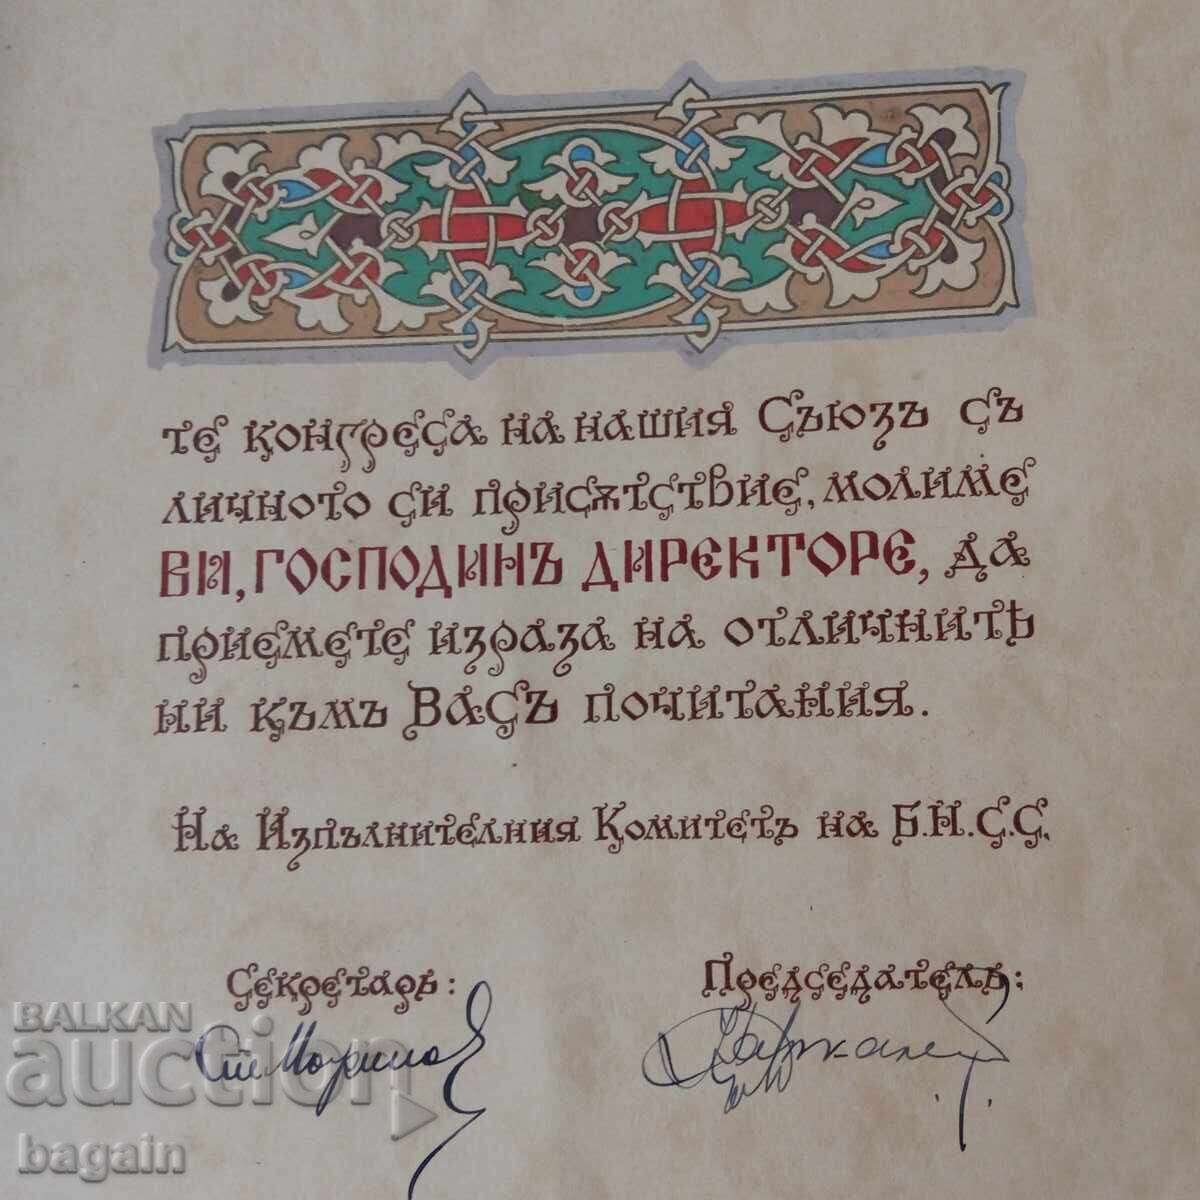 те конгреса на нашия Съюзъ съ
личното си присѫтствие, молиме
ВИ, ГОСПОДИНЪ ДИРЕКТОРЕ, да
приемете израза на отличнитѣ
ни къмъ Васъ почитания.
На Изпълнителния Комитетъ на Б.Н.С.С.
Секретарь: Председатель:
Ст. Маринов
BALKAN
auction
bagain